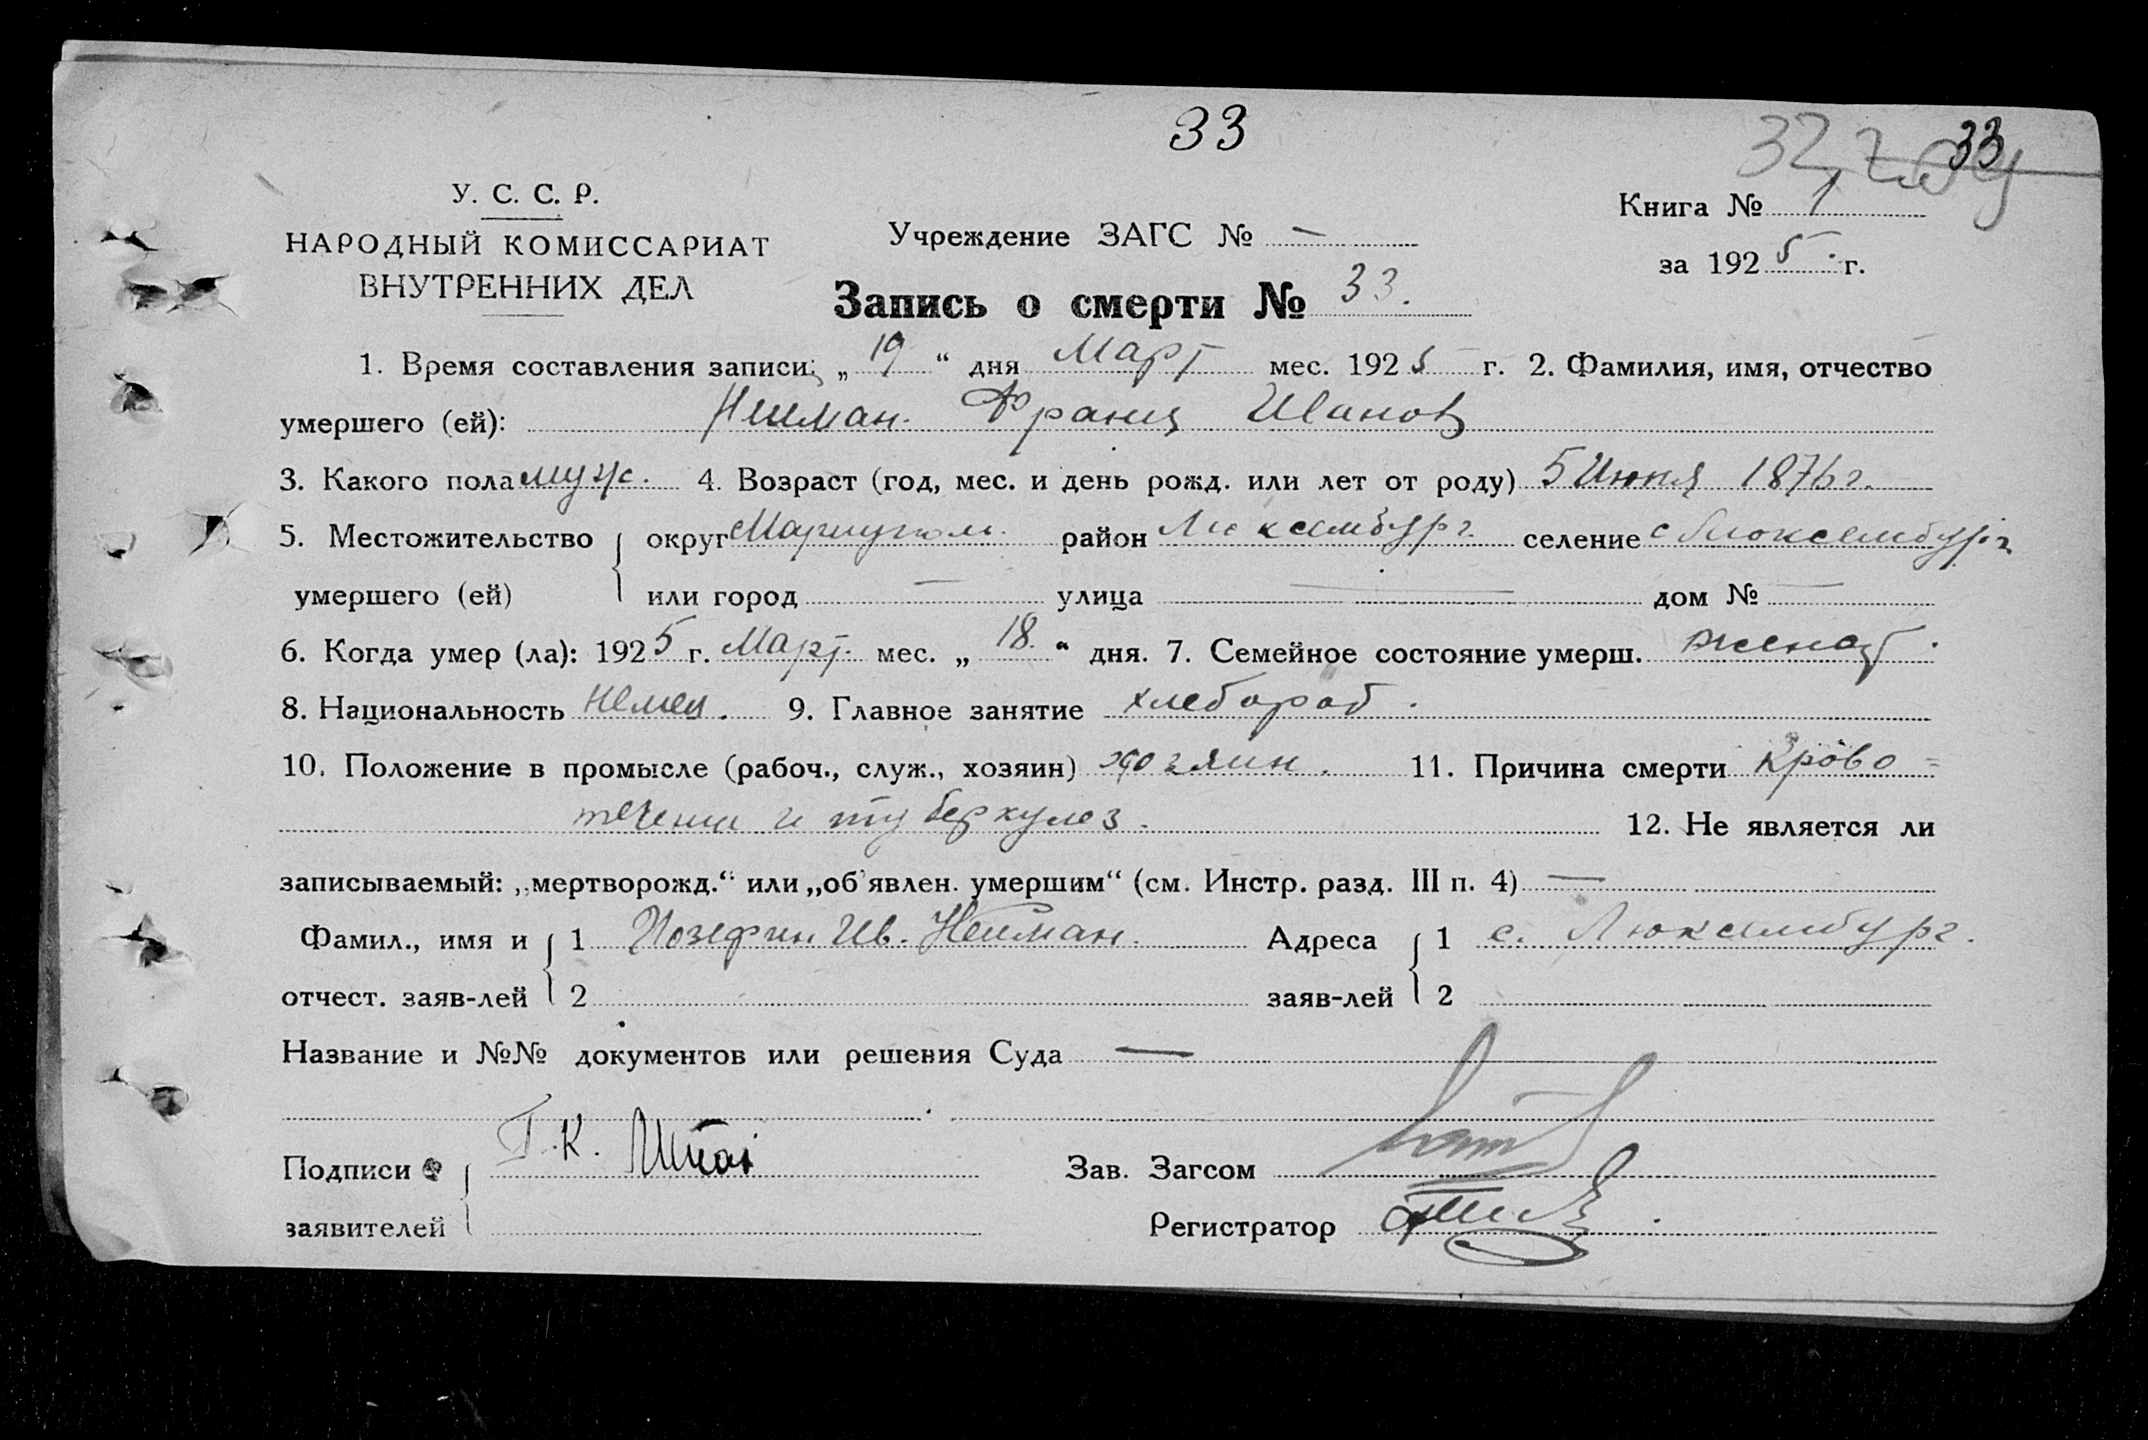 33
33
У. С. С. Р.
НАРОДНЫЙ КОМИССАРИАТ
ВНУТРЕННИХ ДЕЛ
Учреждение ЗАГС № —
Книга № 1
за 1925 г.
Запись о смерти № 33.
1. Время составления записи: „19“ дня Март мес. 1925 г. 2. Фамилия, имя, отчество
умершего (ей): Нейман. Франц Иванов
3. Какого пола муж. 4. Возраст (год, мес. и день рожд. или лет от роду) 5 Июня 1876 г.
5. Местожительство умершего (ей) округ Мариуполь. район Люксембург. селение с Люксембург
или город — улица — дом № —
6. Когда умер (ла): 1925 г. Март. мес. „18.“ дня. 7. Семейное состояние умерш. женат.
8. Национальность немец. 9. Главное занятие хлебороб.
10. Положение в промысле (рабоч., служ., хозяин) хозяин. 11. Причина смерти Крово=
течении и туберкулез. 12. Не является ли
записываемый: „мертворожд.“ или „об’явлен. умершим“ (см. Инстр. разд. III п. 4) —
Фамил., имя и отчест. заяв-лей 1 Иозефин Ив. Нейман. Адреса заяв-лей 1 с. Люксембург.
2 2
Название и №№ документов или решения Суда —
Подписи заявителей Г. К.
Зав. Загсом
Регистратор